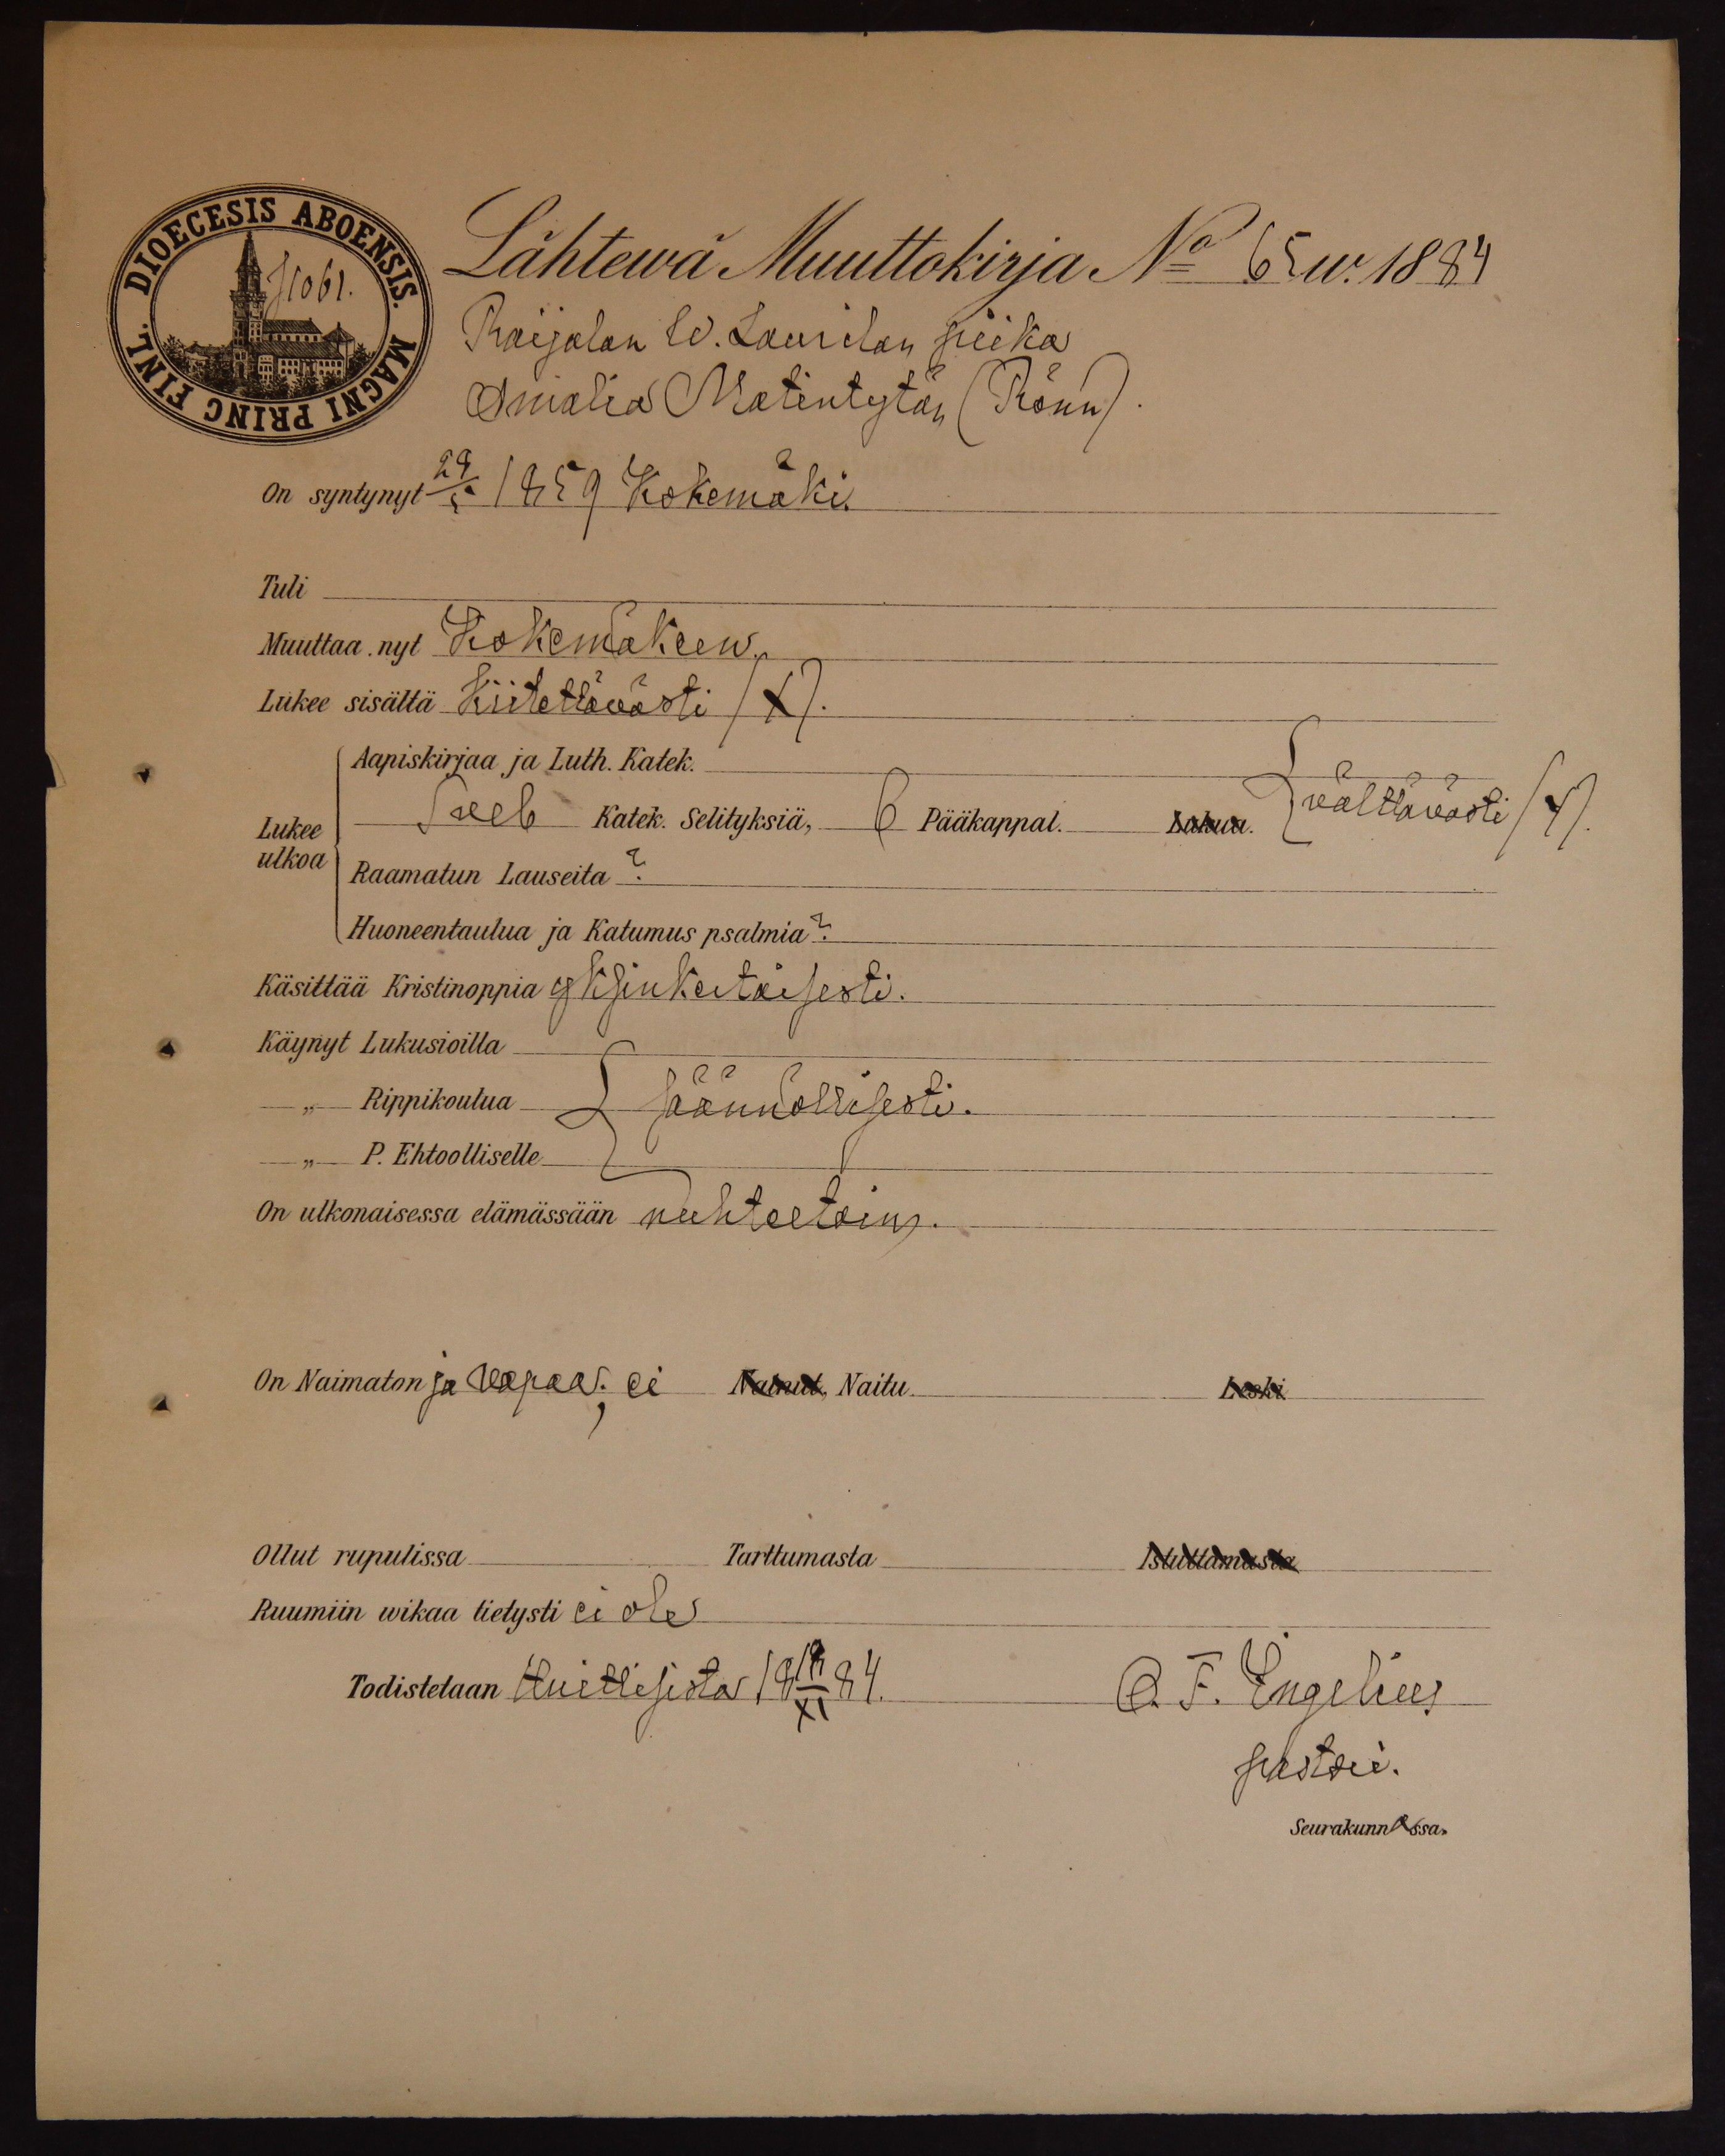 DIOECESIS ABOENSIS. MAGNI PRINC FINL.
S. 1061.
Lähtewä Muuttokirja No 65 w. 1884
Raijalan W. Laurilan piika
Amalia Matintytär (Rönn).
On syntynyt 29/5 1859 Kokemäki.
Tuli
Muuttaa nyt Kokemäkeen.
Lukee sisältä kiitettävästi /X/.
Aapiskirjaa ja Luth. Kateк.
Lukee ulkoa Sveb Katek. Selityksiä, 6 Pääkappal. Lukua. välttävästi /Y/.
Raamatun Lauseita ?
Huoneentaulua ja Katumus psalmia ?
Käsittää Kristinoppia yksinkertaisesti.
Käynyt Lukusioilla
„ Rippikoulua säännöllisesti.
„ P. Ehtoolliselle
On ulkonaisessa elämässään nuhteetoin.
On Naimaton ja vapaa; ei Nainut, Naitu. Leski
Ollut rupulissa Tarttumasta Istuttamasta
Ruumiin wikaa tietysti ei ole
Todistetaan Huittisista 18 18/XI 84. C. F. Engelius
pastori.
Seurakunnassa.